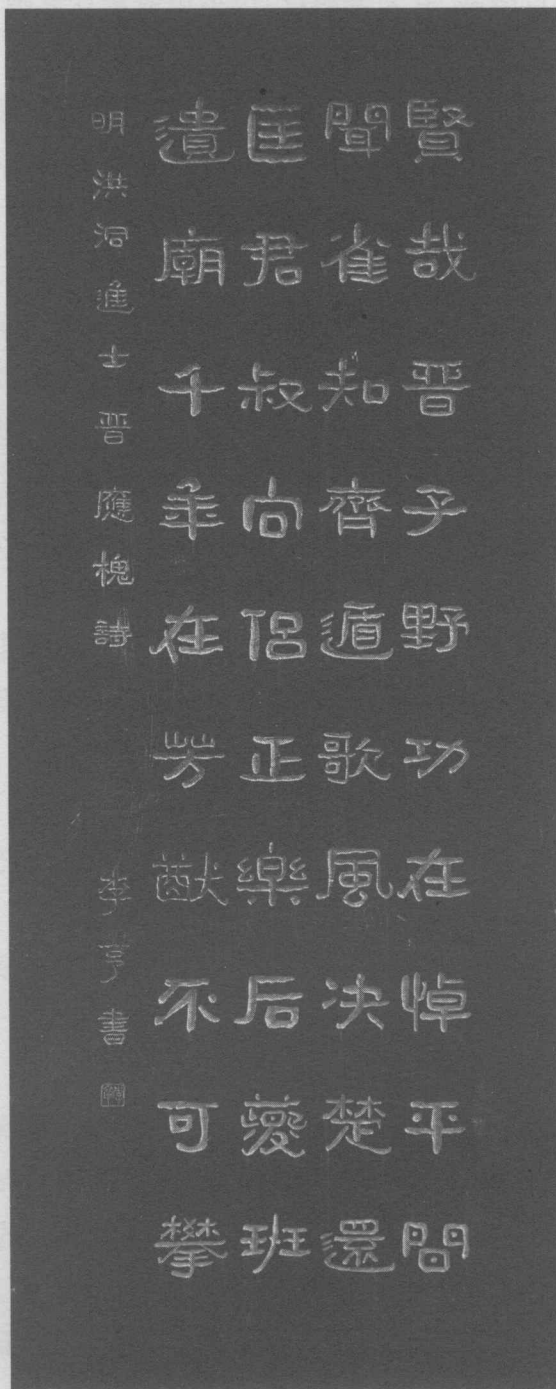 賢哉晋子野功在悼平間
聞雀知齊遁歌風决楚還
匡君叔向侣正樂后夔班
遺廟千年在芳猷不可攀
明洪洞進士晋應槐詩
李亨書